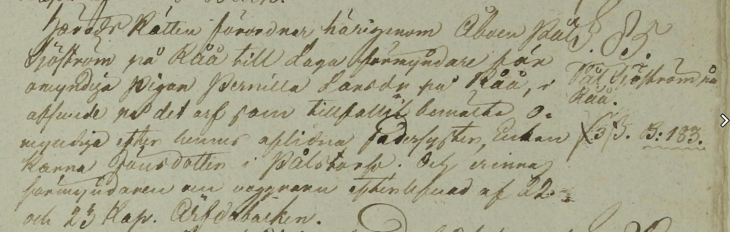 Härads Rätten förordnar härigenom Åboen Påhl
Sjöström på Råå till Laga förmyndare för
omyndiga Pigan Pernilla Larsdr på Råå, i
afseende på det arf som tillfallit bemälte o-
myndiga efter hennes aflidna Fadersyster, Enkan
Karna Jönsdotter i Pålstorp. Och erinras
förmyndaren om noggrann efterlefnad af 22
och 23 Kap. Ärfdabalken.
Påhl Sjöström på
Råå.
B. 183.